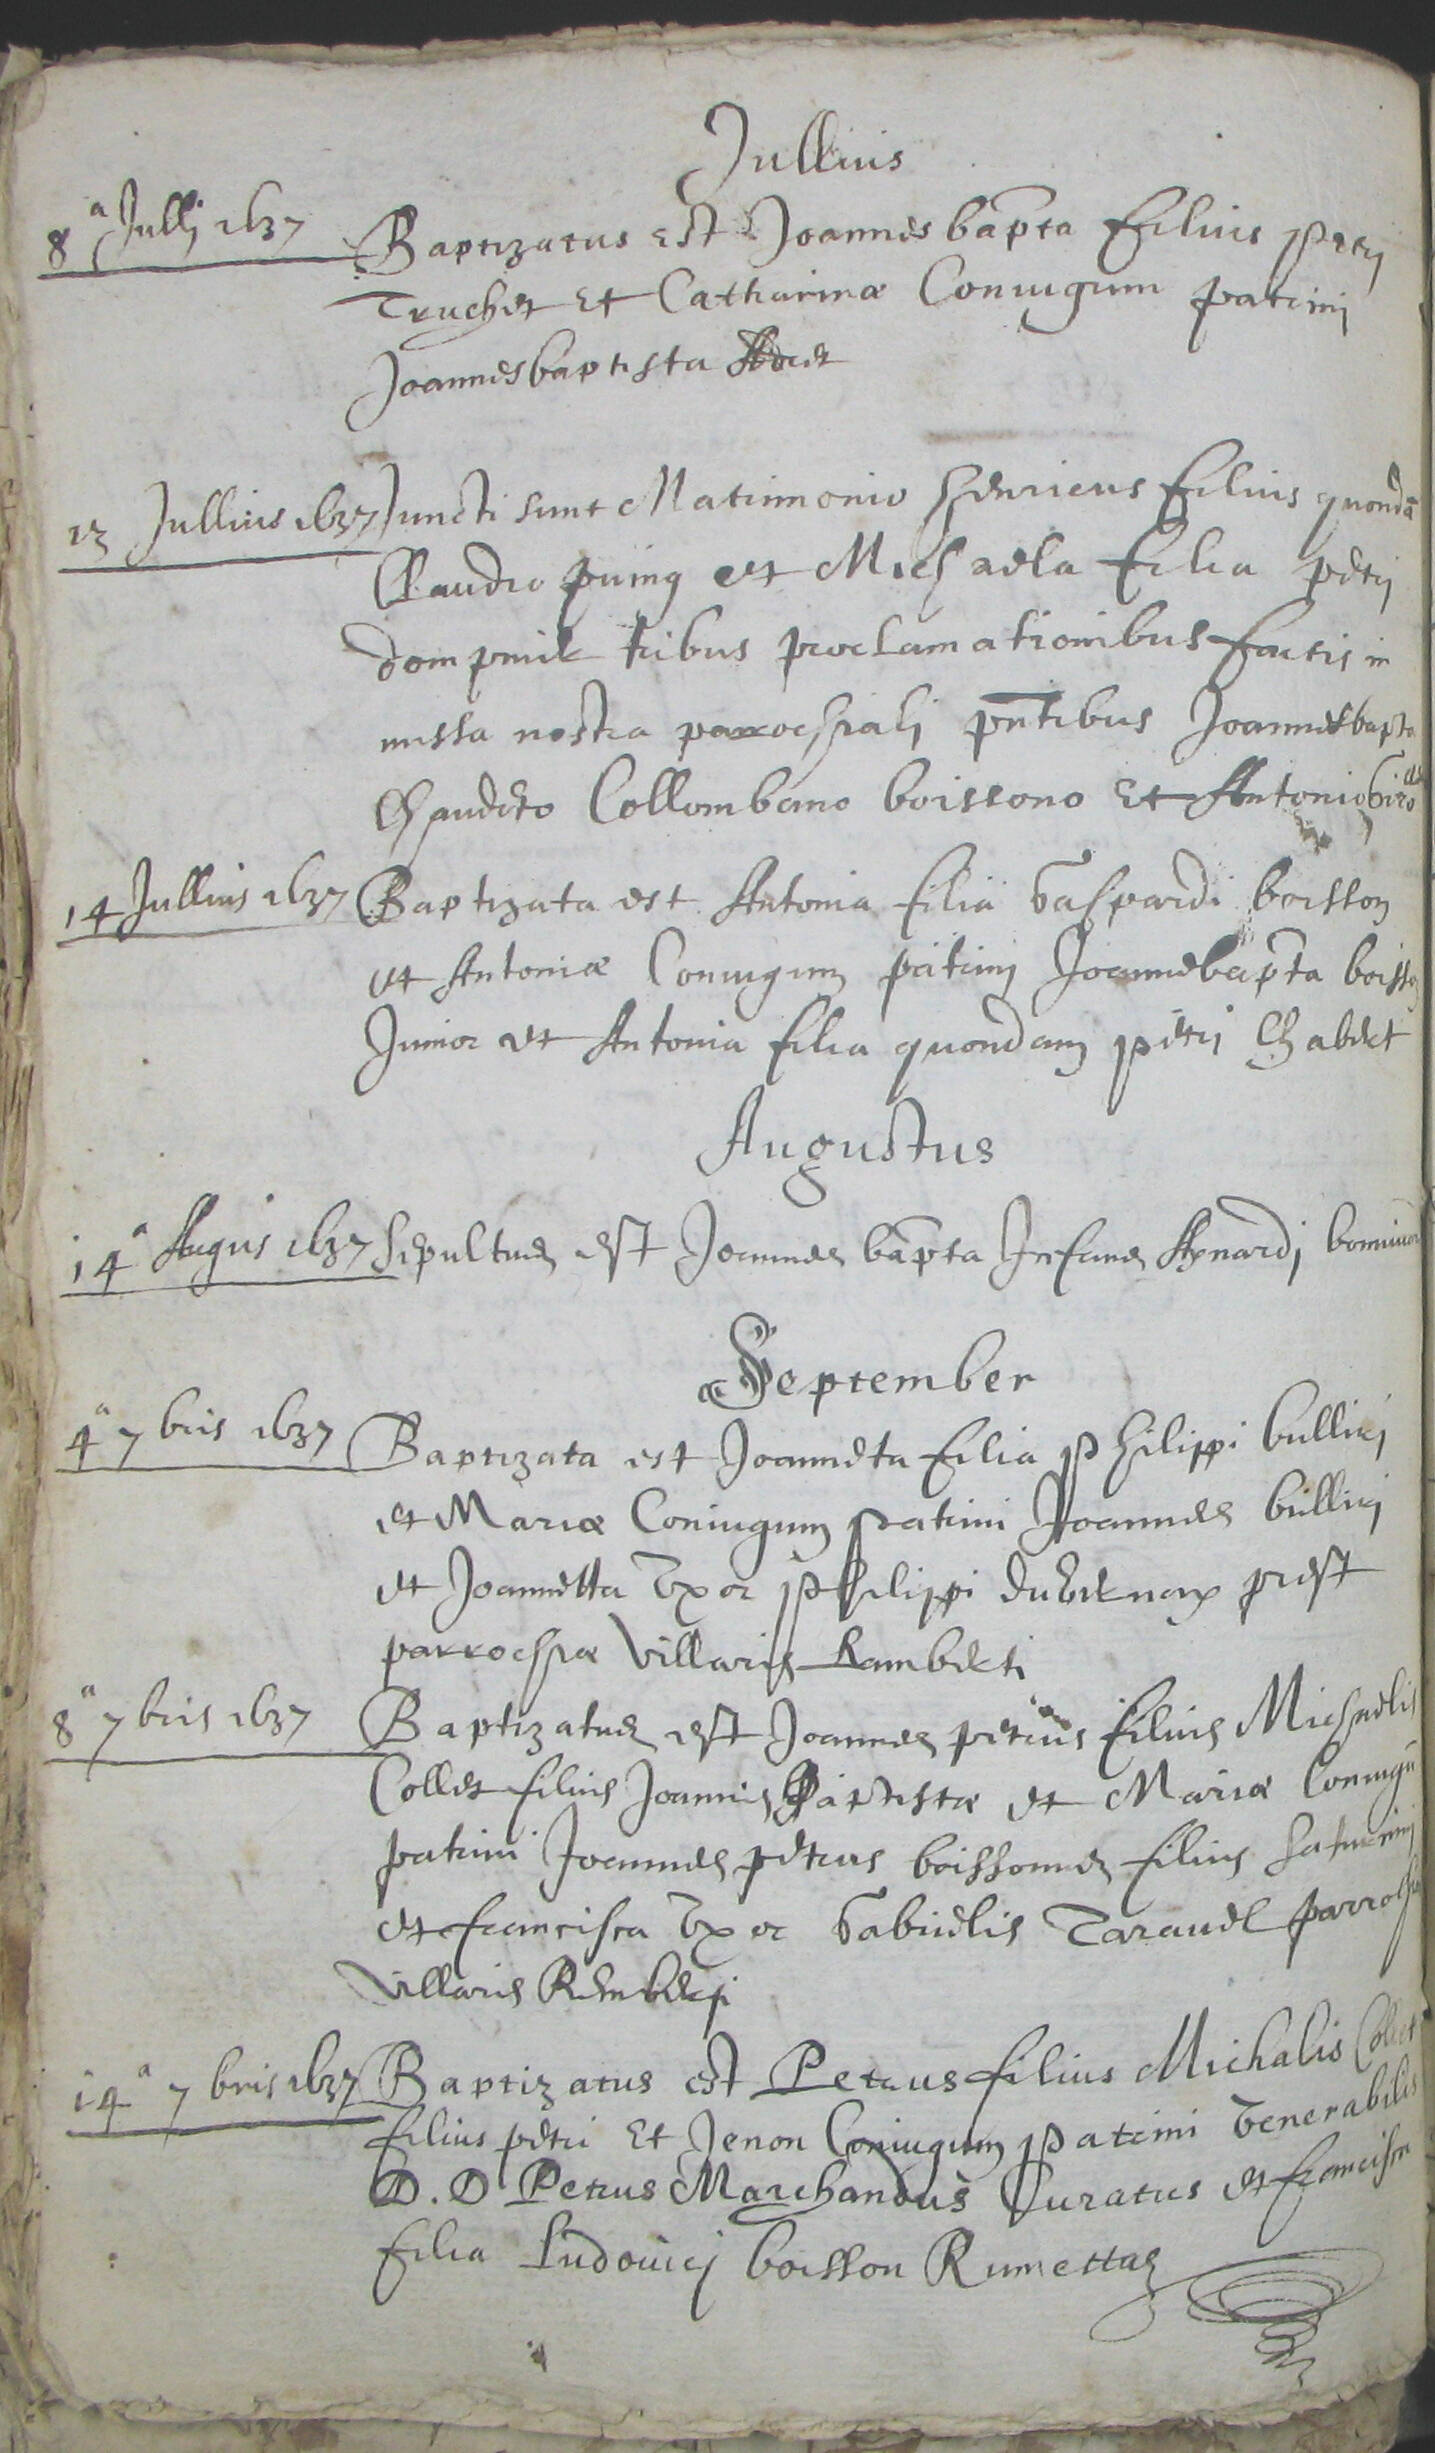 Jullius
8ª Julij 1637 Baptizatus est Joannes bapta filius petri
Truchet et Catharinæ Coniugum patrini
Joannesbaptista
13 Jullius 1637 Juncti sunt Matrimonio henricus filius quondã
Claudio et Michaela filia petri
tribus proclamationibus factis in
missa nostra parrochiali pntibus Joannebapta
Chaudeto Collombano boissono et Antonio
14 Jullius 1637 Baptizata est Antonia filia Gaspardi boisson
et Antoniæ Coniugum patrini Joannesbapta boisson
Junior et Antonia filia quondam petri Chabert
Augustus
14ª Augus 1637 Sepultus est Joannes bapta Infans Aynardj
September
4ª 7bris 1637 Baptizata est Joanneta filia philippi bullirj
et Mariæ Coniugum patrini Joannes bullirj
et Joannetta Uxor philippi
parrochiæ Villaris Ramberti
8ª 7bris 1637 Baptizatus est Joannes petrus filius Michaelis
Collet filius Joannis Baptistæ et Mariæ Coniugũ
patrini Joannes petrus boissonus filius saturnini
et francisca Uxor Gabrielis Taravel parrochiæ
Villaris
14ª 7bris 1637 Baptizatus est Petrus filius Michalis Collet
filius petri et Jenon Coniugum patrini Venerabilis
D. D Petrus Marchandus Curatus et francisca
filia Ludovicj boisson Rumettaz